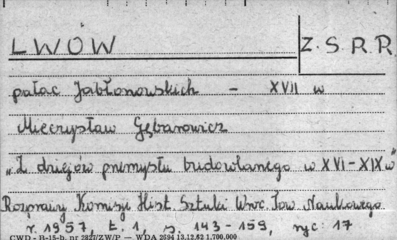 LWÓW
Z.S.R.R.
pałac Jabłonowskich - XVII w
Mieczysław Gębarowicz
"Z dziejów przemysłu budowlanego w XVI-XIXw"
Rozprawy Komisji Hist. Sztuki Wroc. Tow. Naukowego
r. 1957, t. 1, s. 143-159, ryc. 17
CWD - B-15-b. nr 2827/ZW/P — WDA 2094 13.12.82 1.700.000